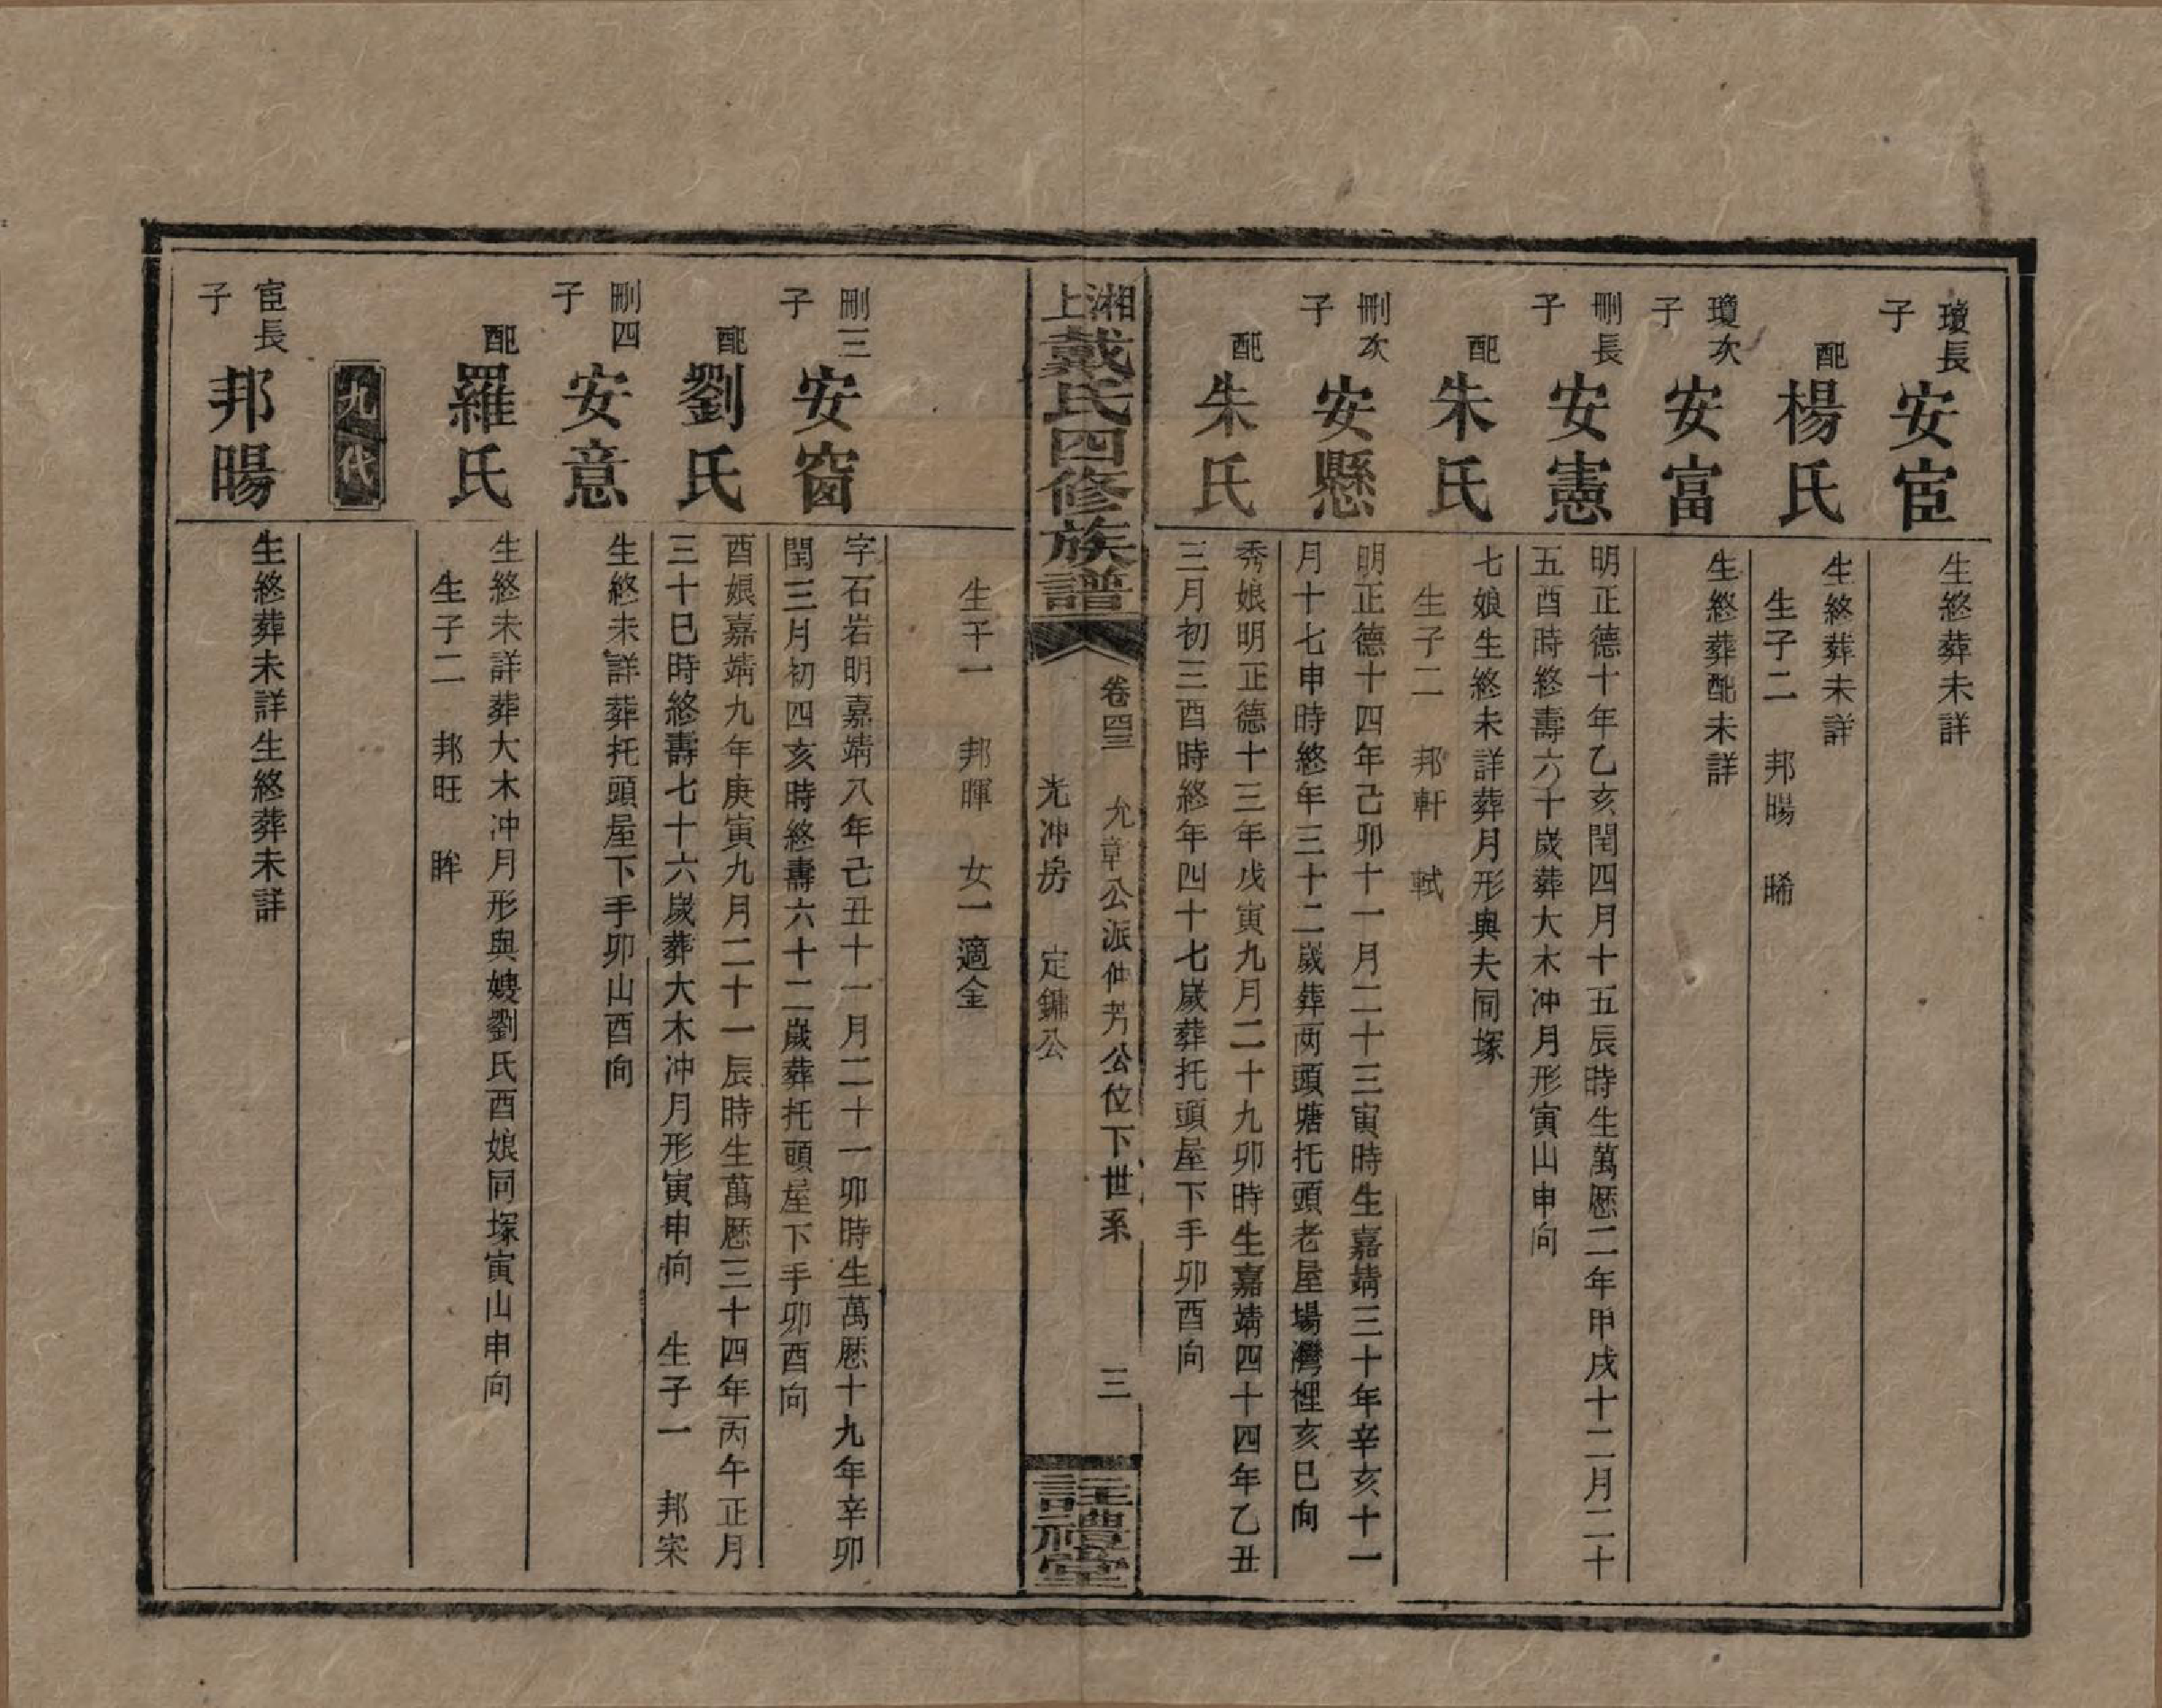 瓊長子
安宦
生終葬未詳
配
楊氏
生終葬未詳
生子二　邦暘　晞
瓊次子
安富
生終葬配未詳
刪長子
安憲
明正德十年乙亥閏四月十五辰時生萬厯二年甲戌十二月二十
五酉時終壽六十歲葬大木冲月形寅山申向
配
朱氏
七娘生終未詳葬月形與夫同塚
生子二　邦軒　軾
刪次子
安懸
明正德十四年己卯十一月二十三寅時生嘉靖三十年辛亥十一
月十七申時終年三十二歲葬两頭塘托頭老屋場灣裡亥巳向
配
朱氏
秀娘明正德十三年戊寅九月二十九卯時生嘉靖四十四年乙丑
三月初三酉時終年四十七歲葬托頭屋下手卯酉向
湘上戴氏四修族譜
卷四三　允章公派仲芳公位下世系　三
光冲房　定鏽公
註禮堂
生子一　邦暉　女一適金
刪三子
安窗
字石岩明嘉靖八年己丑十一月二十一卯時生萬厯十九年辛卯
閏三月初四亥時終壽六十二歲葬托頭屋下手卯酉向
配
劉氏
酉娘嘉靖九年庚寅九月二十一辰時生萬厯三十四年丙午正月
三十巳時終壽七十六歲葬大木冲月形寅申向　生子一　邦宋
刪四子
安意
生終未詳葬托頭屋下手卯山酉向
配
羅氏
生終未詳葬大木冲月形與嫂劉氏酉娘同塚寅山申向
生子二　邦旺　眸
九代
宦長子
邦暘
生終葬未詳生終葬未詳